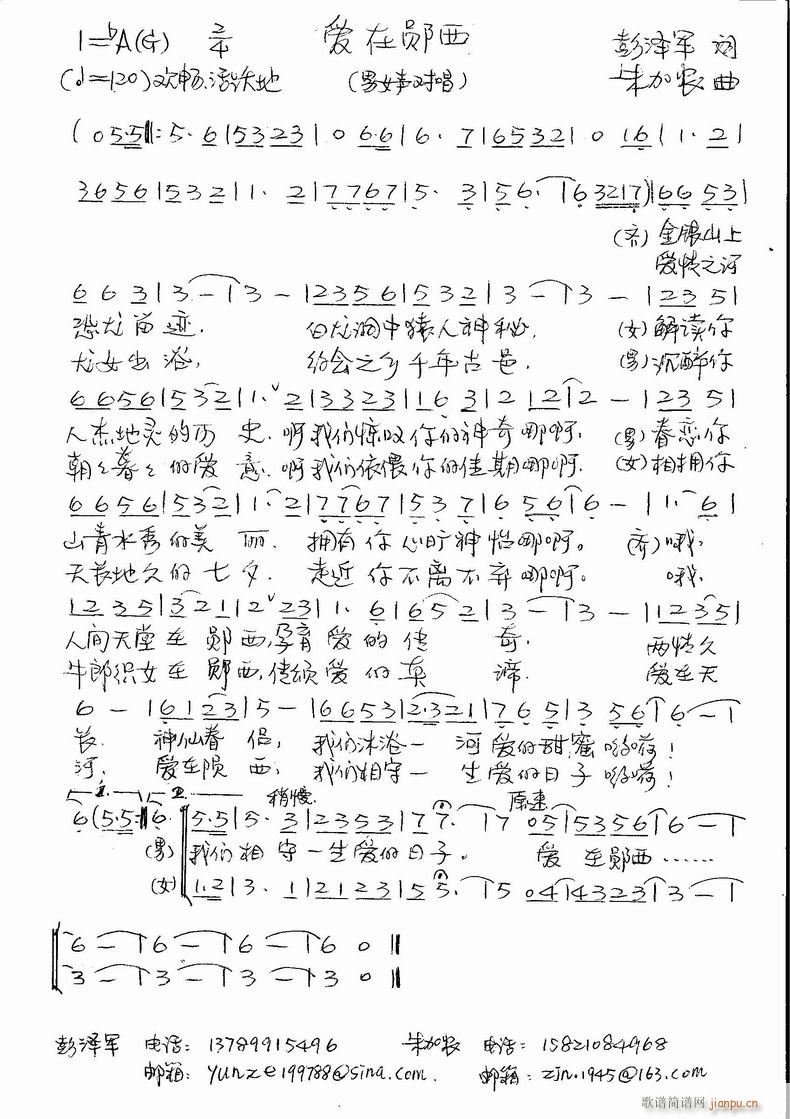 1=ᵇA(G) 2/4 爱在郧西 彭泽军 词
(♩=120)欢畅、活泼地 (男女声对唱) 朱加农 曲
(0 5·5‖: 5· 6|5 3 2 3|0 6·6|6· 7|6 5 3 2|0 1 6|(1· 2|
3 6 5 6|5 3 2|1· 2|7 7 6 7|5· 3|5 6·|6 3 2 1 7)|6 6 5 3|
(齐)金银山上
爱情之河
6 6 3|3 -|3 -|2 3 5 6|5 3 2|3 -|3 -|2 3 5|
恐龙留迹. 白龙洞中猿人神秘. (女)解读你
龙女出浴, 约会之乡千年古邑. (男)沉醉你
6 6 5 6|5 3 2|1·ᵛ 2|3 3 2 3|1 6 3|2 1 2|2 -|2 3 5|
人杰地灵的历史.啊我们惊叹你的神奇哪啊. (男)眷恋你
朝々暮々的爱意.啊我们依偎你的佳期哪啊. (女)相拥你
6 6 5 6|5 3 2|1· 2|7 7 6 7|5 3 7|6 5 6|6 -|1· 6|
山青水秀的美丽. 拥有你心旷神怡哪啊。 (齐)哦,
天长地久的七夕. 走近你不离不弃哪啊。 哦,
1 2 3 5|3 2 1|2ᵛ 2 3|1· 6|6 5 2|3 -|3 -|1 2 3 5|
人间天堂在郧西,孕育爱的传奇. 两情久
牛郎织女在郧西,传颂爱的真谛. 爱在天
6 -|6 1 2 3|5 -|6 6 5 3|2·3 2 1|7 6 5|3 5 6|6 -|
长. 神仙眷侣, 我们沐浴一河爱的甜蜜哟嗬!
河. 爱在陨西, 我们相守一生爱的日子哟嗬!
1. 2. 稍慢 原速
6 (5·5:‖6· 5·5|5· 3|2 3 5 3|7 7·|7 0 5|5 3 5 6|6 -|
(男)我们相守一生爱的日子。 爱在郧西……
(女) 1·2|3· 1|2 1 2 3|5 5·|5 0 4|4 3 2 3|3 -|
6 -|6 -|6 -|6 0‖
3 -|3 -|3 -|3 0‖
彭泽军 电话: 13789915496 朱加农 电话: 15821084968
邮箱: yunze199788@sina.com. 邮箱: zjn.1945@163.com
歌谱简谱网
jianpu.cn